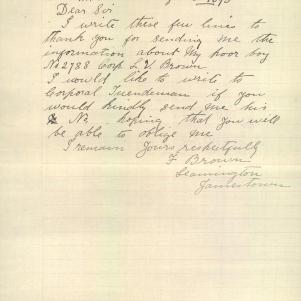 Dear Sir
I write these few lines to
thank you for sending me the
information about my poor boy
No 2788 Corp L. V. Brown
I would like to write to
Corporal if you
would kindly send me his
No hoping that you will
be able to oblige me
I remain Yours respectfully
F Brown
Leamington
Jamestown